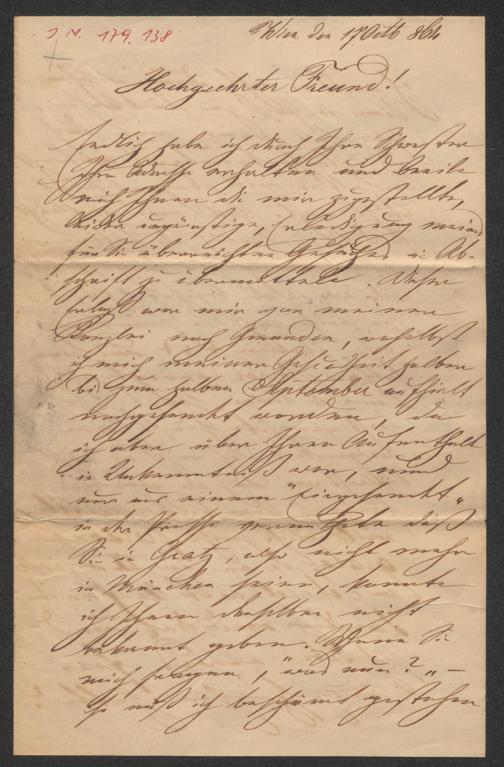 J. N. 179.138
Wien den 17 Octb 864
Hochgeehrter Freund!
Endlich habe ich durch Ihre Schwester
Ihre Adresse erhalten und beeile
mich Ihnen die mir zugestellte,
leider ungünstige, Erledigung meines
für Sie überreichten Gesuches in Ab-
schrift zu übermitteln. Dieser
Erlaß war mir von meiner
Kanzlei nach Gmunden, woselbst
ich mich meiner Gesundheit halber
bis zum halben September aufhielt
nachgesandt worden, da
ich aber über Ihren Aufenthalt
in Unkenntniß war, und
nur aus einem "Eingesandt"
in der Presse daß
Sie in Gratz, also nicht mehr
in München seien, konnte
ich Ihnen denselben nicht
bekannt geben. Wenn Sie
mich fragen, "was nun?" –
so muß ich beschämt gestehen